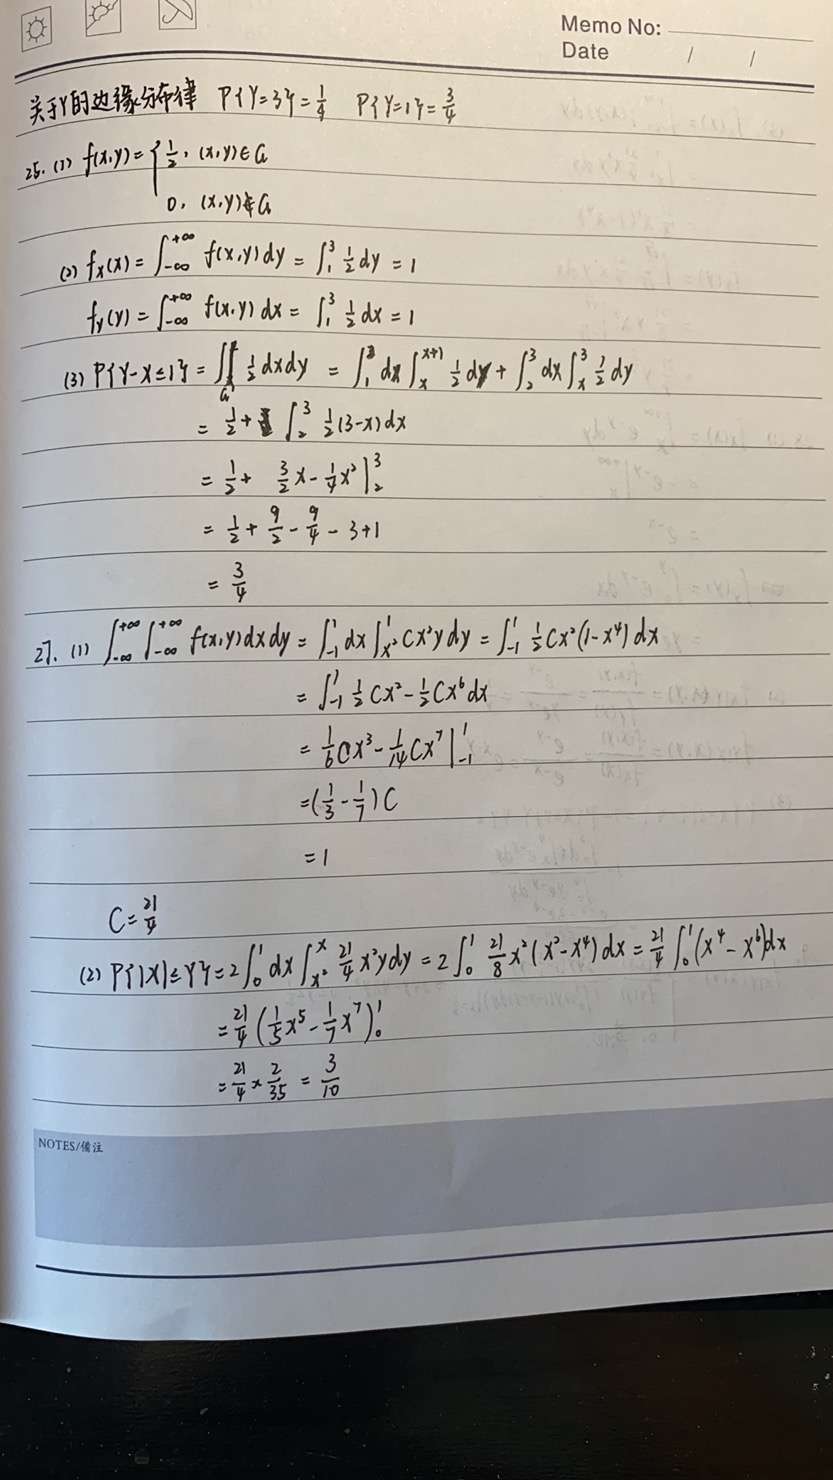 Memo No:
Date / /
关于Y的边缘分布律 P{Y=3}=1/4 P{Y=1}=3/4
25. (1) f(x,y)={1/2, (x,y)∈G
0, (x,y)∉G
(2) fx(x)=∫_{-∞}^{+∞} f(x,y)dy=∫_1^3 1/2 dy=1
fy(y)=∫_{-∞}^{+∞} f(x,y)dx=∫_1^3 1/2 dx=1
(3) P{Y-X≤1}=∬_G 1/2 dxdy =∫_1^2 dx∫_x^{x+1} 1/2 dy+∫_2^3 dx∫_x^3 1/2 dy
=1/2+∫_2^3 1/2(3-x)dx
=1/2+ 3/2x-1/4x²|_2^3
=1/2+9/2-9/4-3+1
=3/4
27. (1) ∫_{-∞}^{+∞}∫_{-∞}^{+∞} f(x,y)dxdy=∫_{-1}^1 dx∫_{x²}^1 Cx²ydy=∫_{-1}^1 1/2Cx²(1-x⁴)dx
=∫_{-1}^1 1/2Cx²-1/2Cx⁶dx
=1/6Cx³-1/14Cx⁷|_{-1}^1
=(1/3-1/7)C
=1
C=21/4
(2) P{|X|≤Y}=2∫_0^1 dx∫_{x²}^x 21/4x²ydy=2∫_0^1 21/8x²(x²-x⁴)dx=21/4∫_0^1(x⁴-x⁶)dx
=21/4(1/5x⁵-1/7x⁷)_0^1
=21/4×2/35=3/10
NOTES/備注